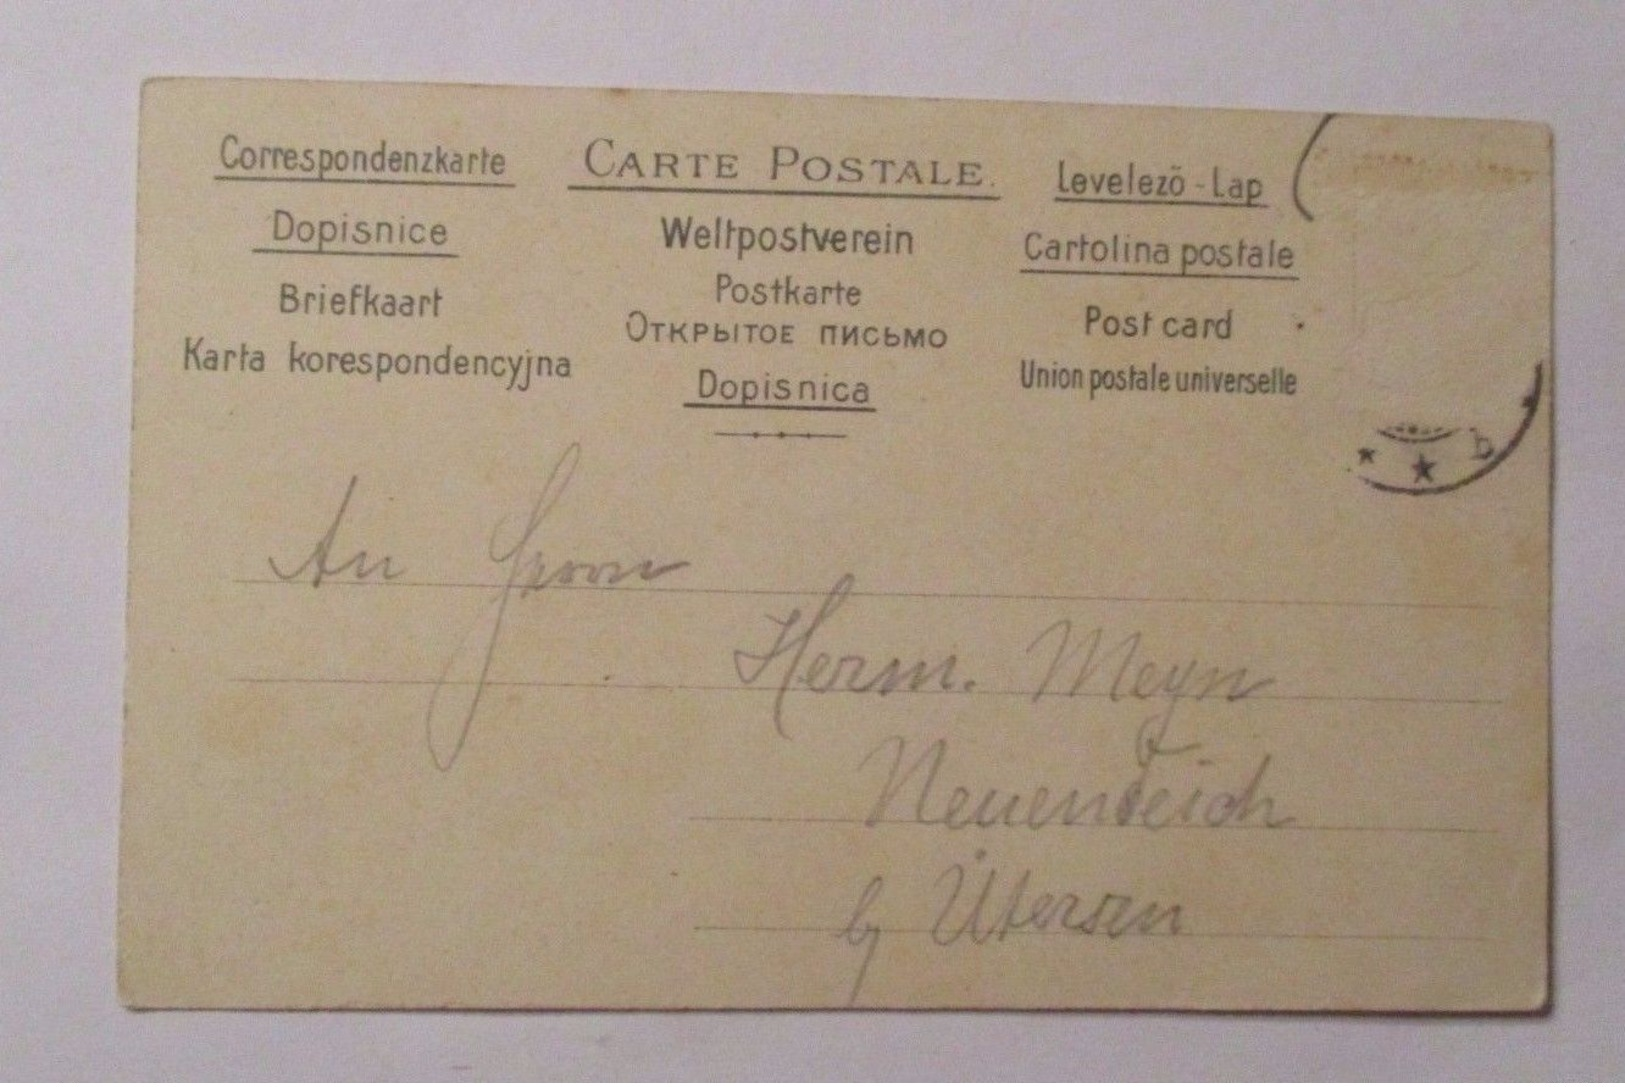 Correspondenzkarte
Dopisnice
Briefkaart
Karta korespondencyjna
CARTE POSTALE.
Weltpostverein
Postkarte
ОТКРЫТОЕ ПИСЬМО
Dopisnica
Levelezö-Lap
Cartolina postale
Post card
Union postale universelle
b
An Herrn
Herm. Meyn
Neuendeich
by Ütersen